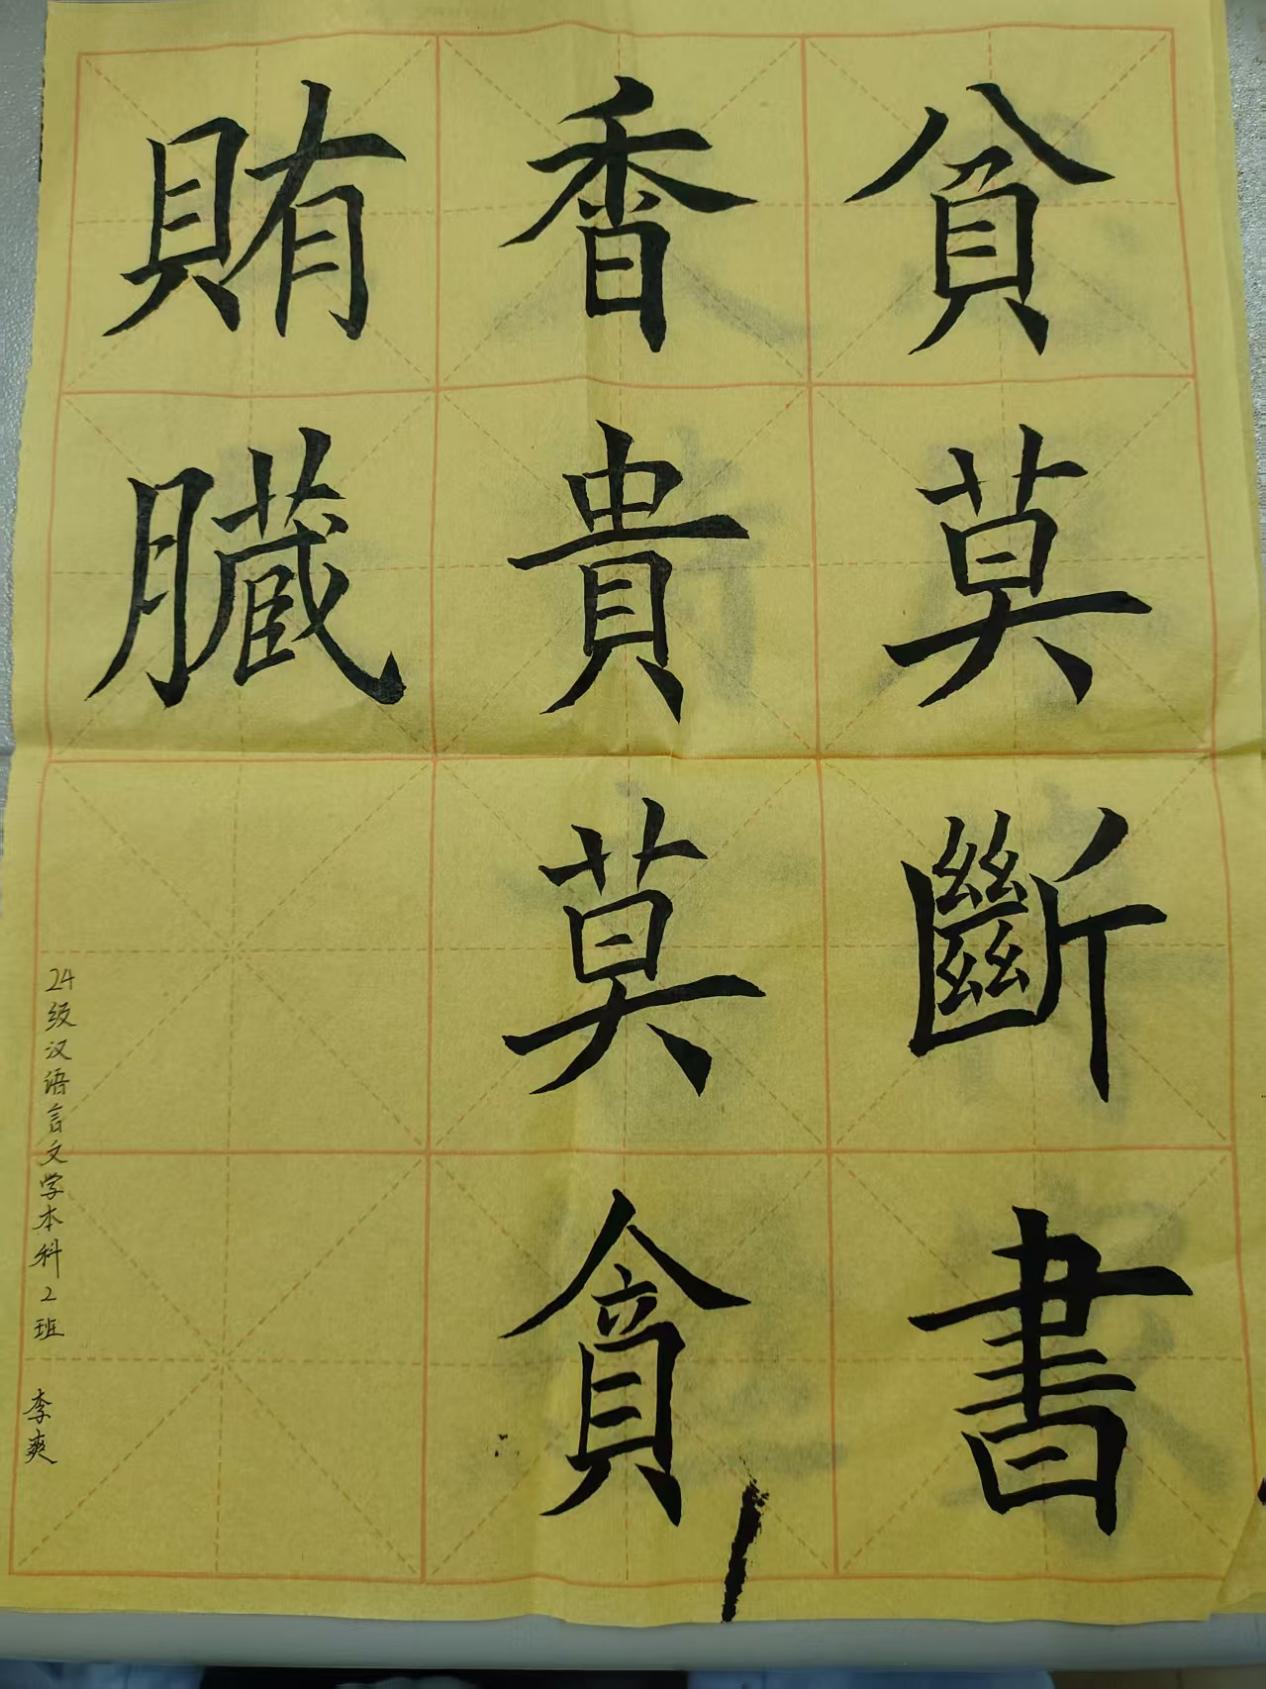 貧莫斷書
香貴莫貪
賄臟
24级汉语言文学本科2班 李爽